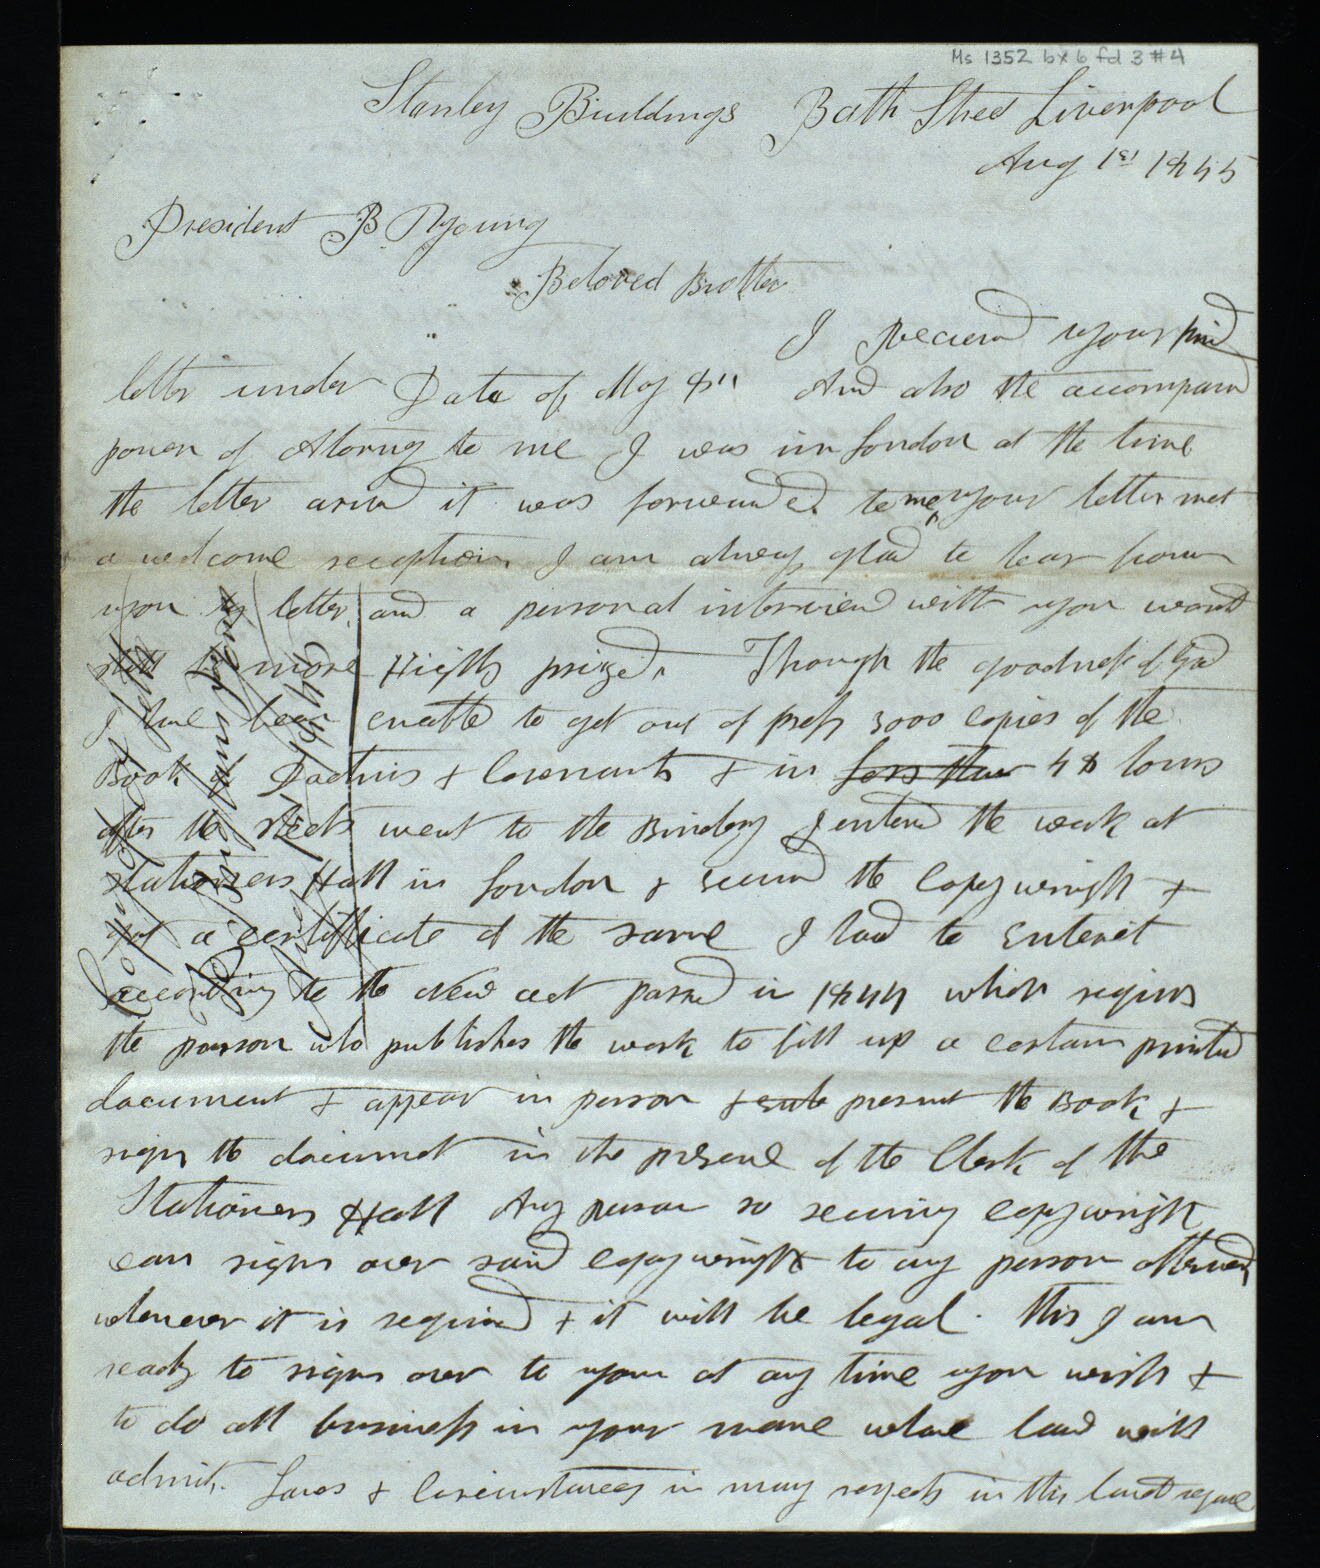 Ms 1352 bx 6 fd 3 #4
Stanley Buildings Bath Stree Liverpool
Aug 1st 1845
President B. Young
Beloved Brother
I received your kind
letter under Date of May 8th And also the accompan
power of Attorney to me I was in London at the time
the letter arived it was forwarded to me your letter met
a welcome reception I am always glad to hear from
you by letter, and a personal interview with you would
still be more Highly prized. Through the goodness of God
I have been enabled to get out of press 3000 copies of the
Book of Doctrins & Covenants & in less than 48 hours
after the sheets went to the Bindery I entered the work at
Stationers Hall in London & secured the Copy wright &
got a certifficate of the same I had to Enter it
according to the New act passed in 1844 which requires
the person who publishes the work to fill up a certain printed
document & appear in person & present the Book &
sign the document in the presence of the Clerk of the
Stationers Hall Any person so securing copy wright
can sign over said copy wright to any person afterwards
whenever it is required & it will be legal. This I am
ready to sign over to you at any time you wish &
to do all business in your name whare law will
admit. Laws & Circumstances in many respects in this land require